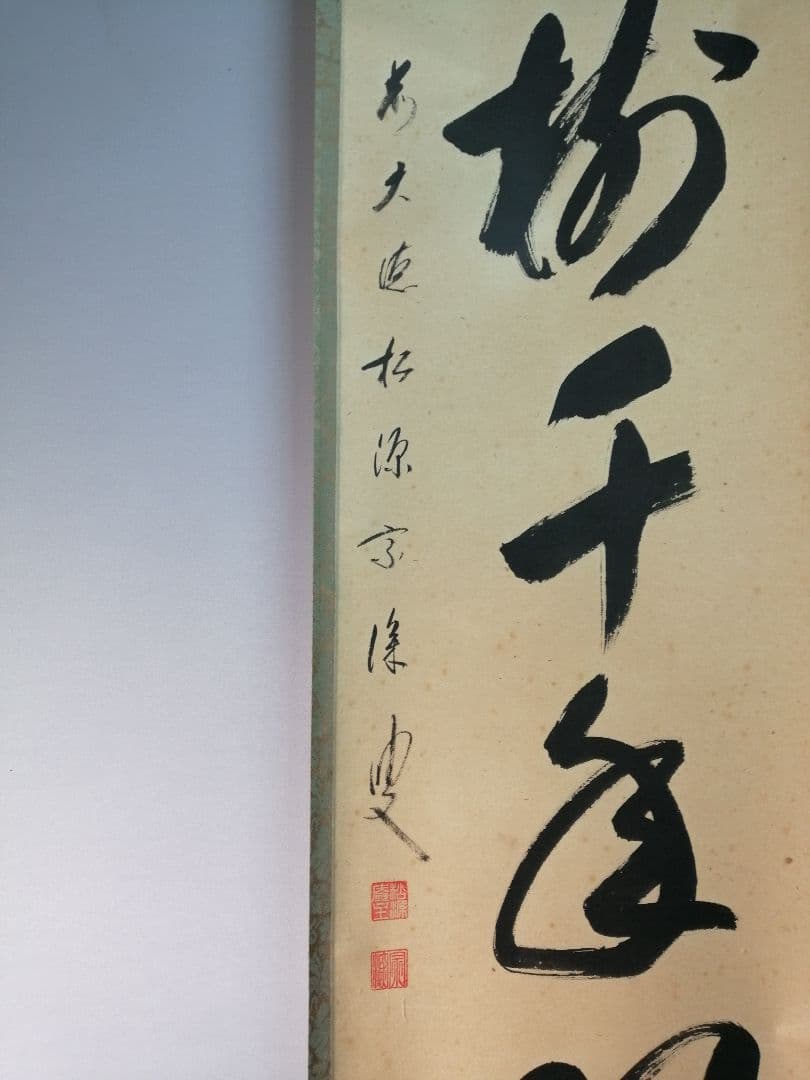 樹千年
前大徳松源宗深叟